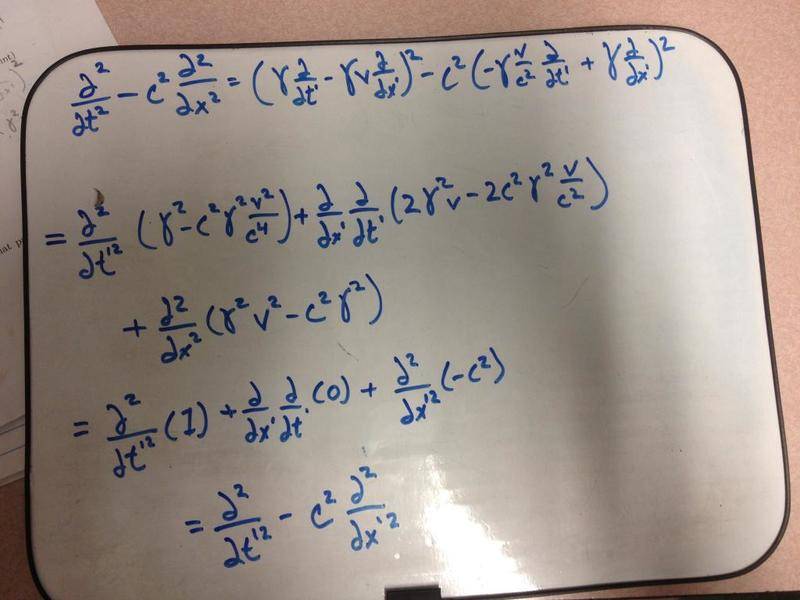 ∂²/∂t² - c² ∂²/∂x² = (γ ∂/∂t' - γv ∂/∂x')² - c² (-γ v/c² ∂/∂t' + γ ∂/∂x')²
= ∂²/∂t'² (γ² - c²γ² v²/c⁴) + ∂/∂x' ∂/∂t' (2γ²v - 2c²γ² v/c²)
+ ∂²/∂x² (γ²v² - c²γ²)
= ∂²/∂t'² (1) + ∂/∂x' ∂/∂t' (0) + ∂²/∂x'² (-c²)
= ∂²/∂t'² - c² ∂²/∂x'²